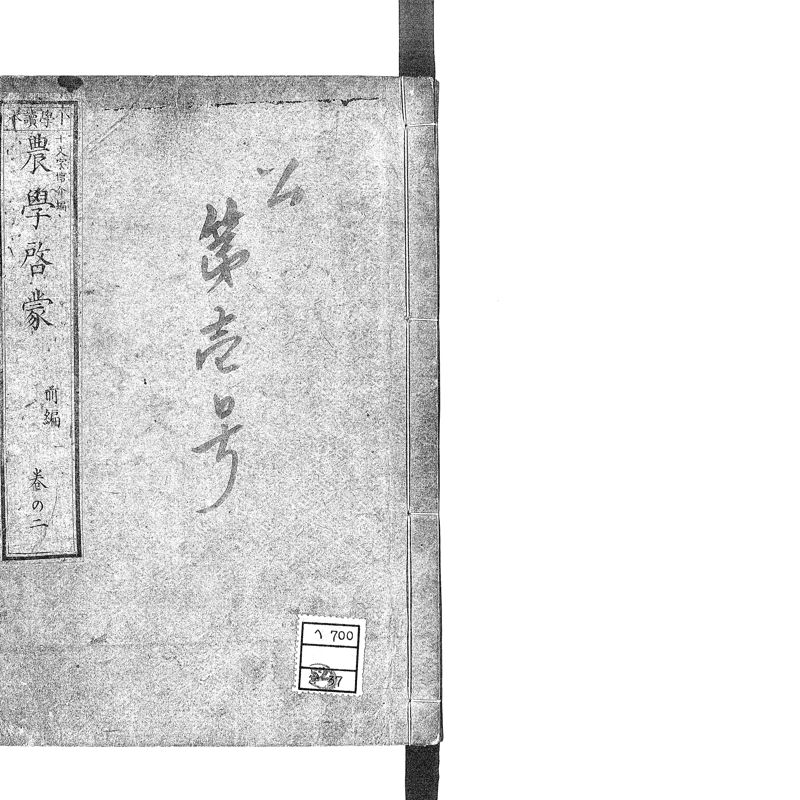 公
第壱号
小學讀本
十文字信介編
農學啓蒙
前編
巻の二
ヘ 700